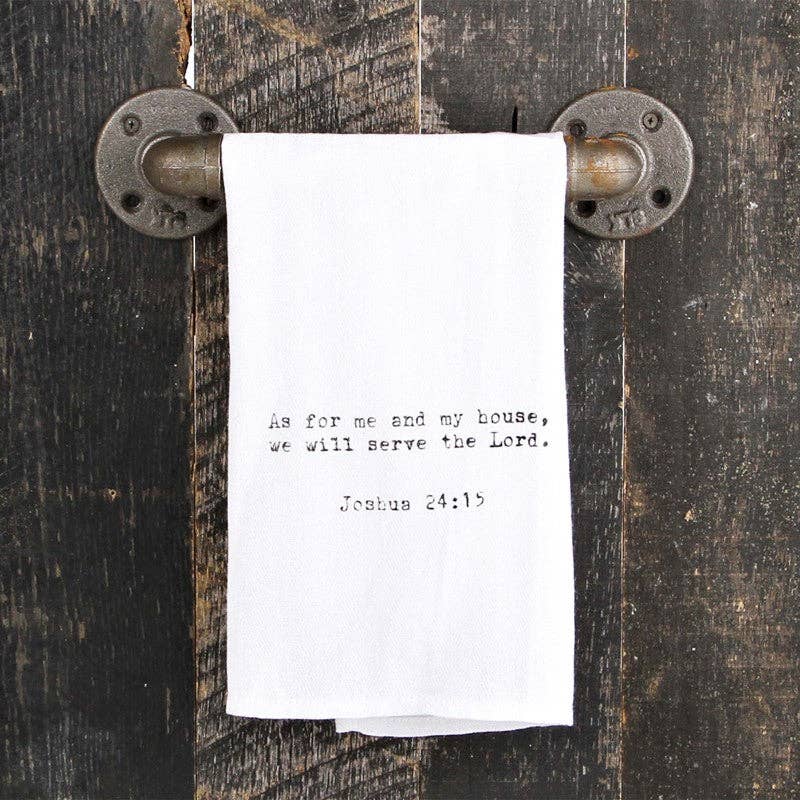 As for me and my house,
we will serve the Lord.
Joshua 24:15